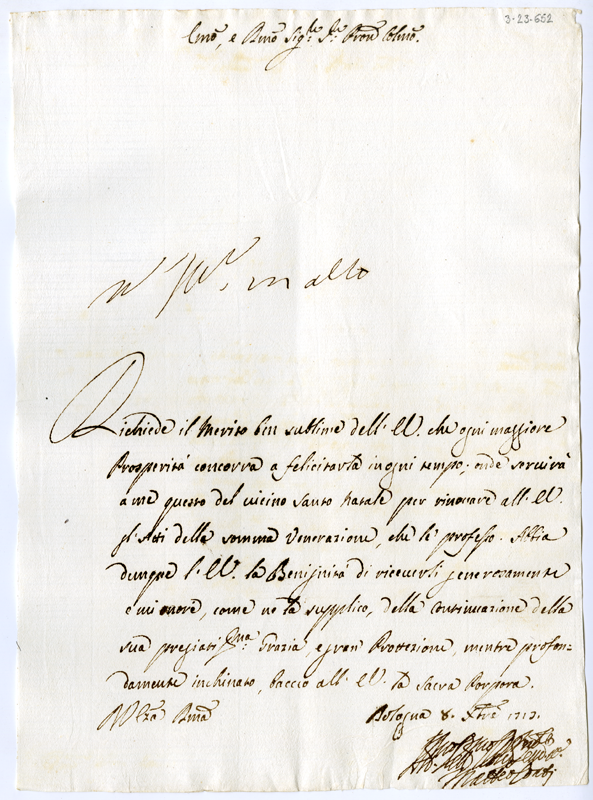 3-23-652
Emo, e Rmo Sigre Sre Pron Colmo.
molto
Richiede il Merito ben sublime dell' EV. che ogni maggiore
Prosperità concorra a felicitarla in ogni tempo; onde servirà
a me questo del vicino Santo Natale per rinovare all' EV.
gl'atti della somma Venerazione, che le professo. Abbia
dunque l'EV. la Benignità di riceverli generosamente
e mi onori, come ne la supplico, della continuazione della
sua pregiatissma Grazia, e gran Protezione, mentre profon=
damente inchinato, baccio all' EV. la Sacra Porpora.
Bologna 8. Xbre 1713.